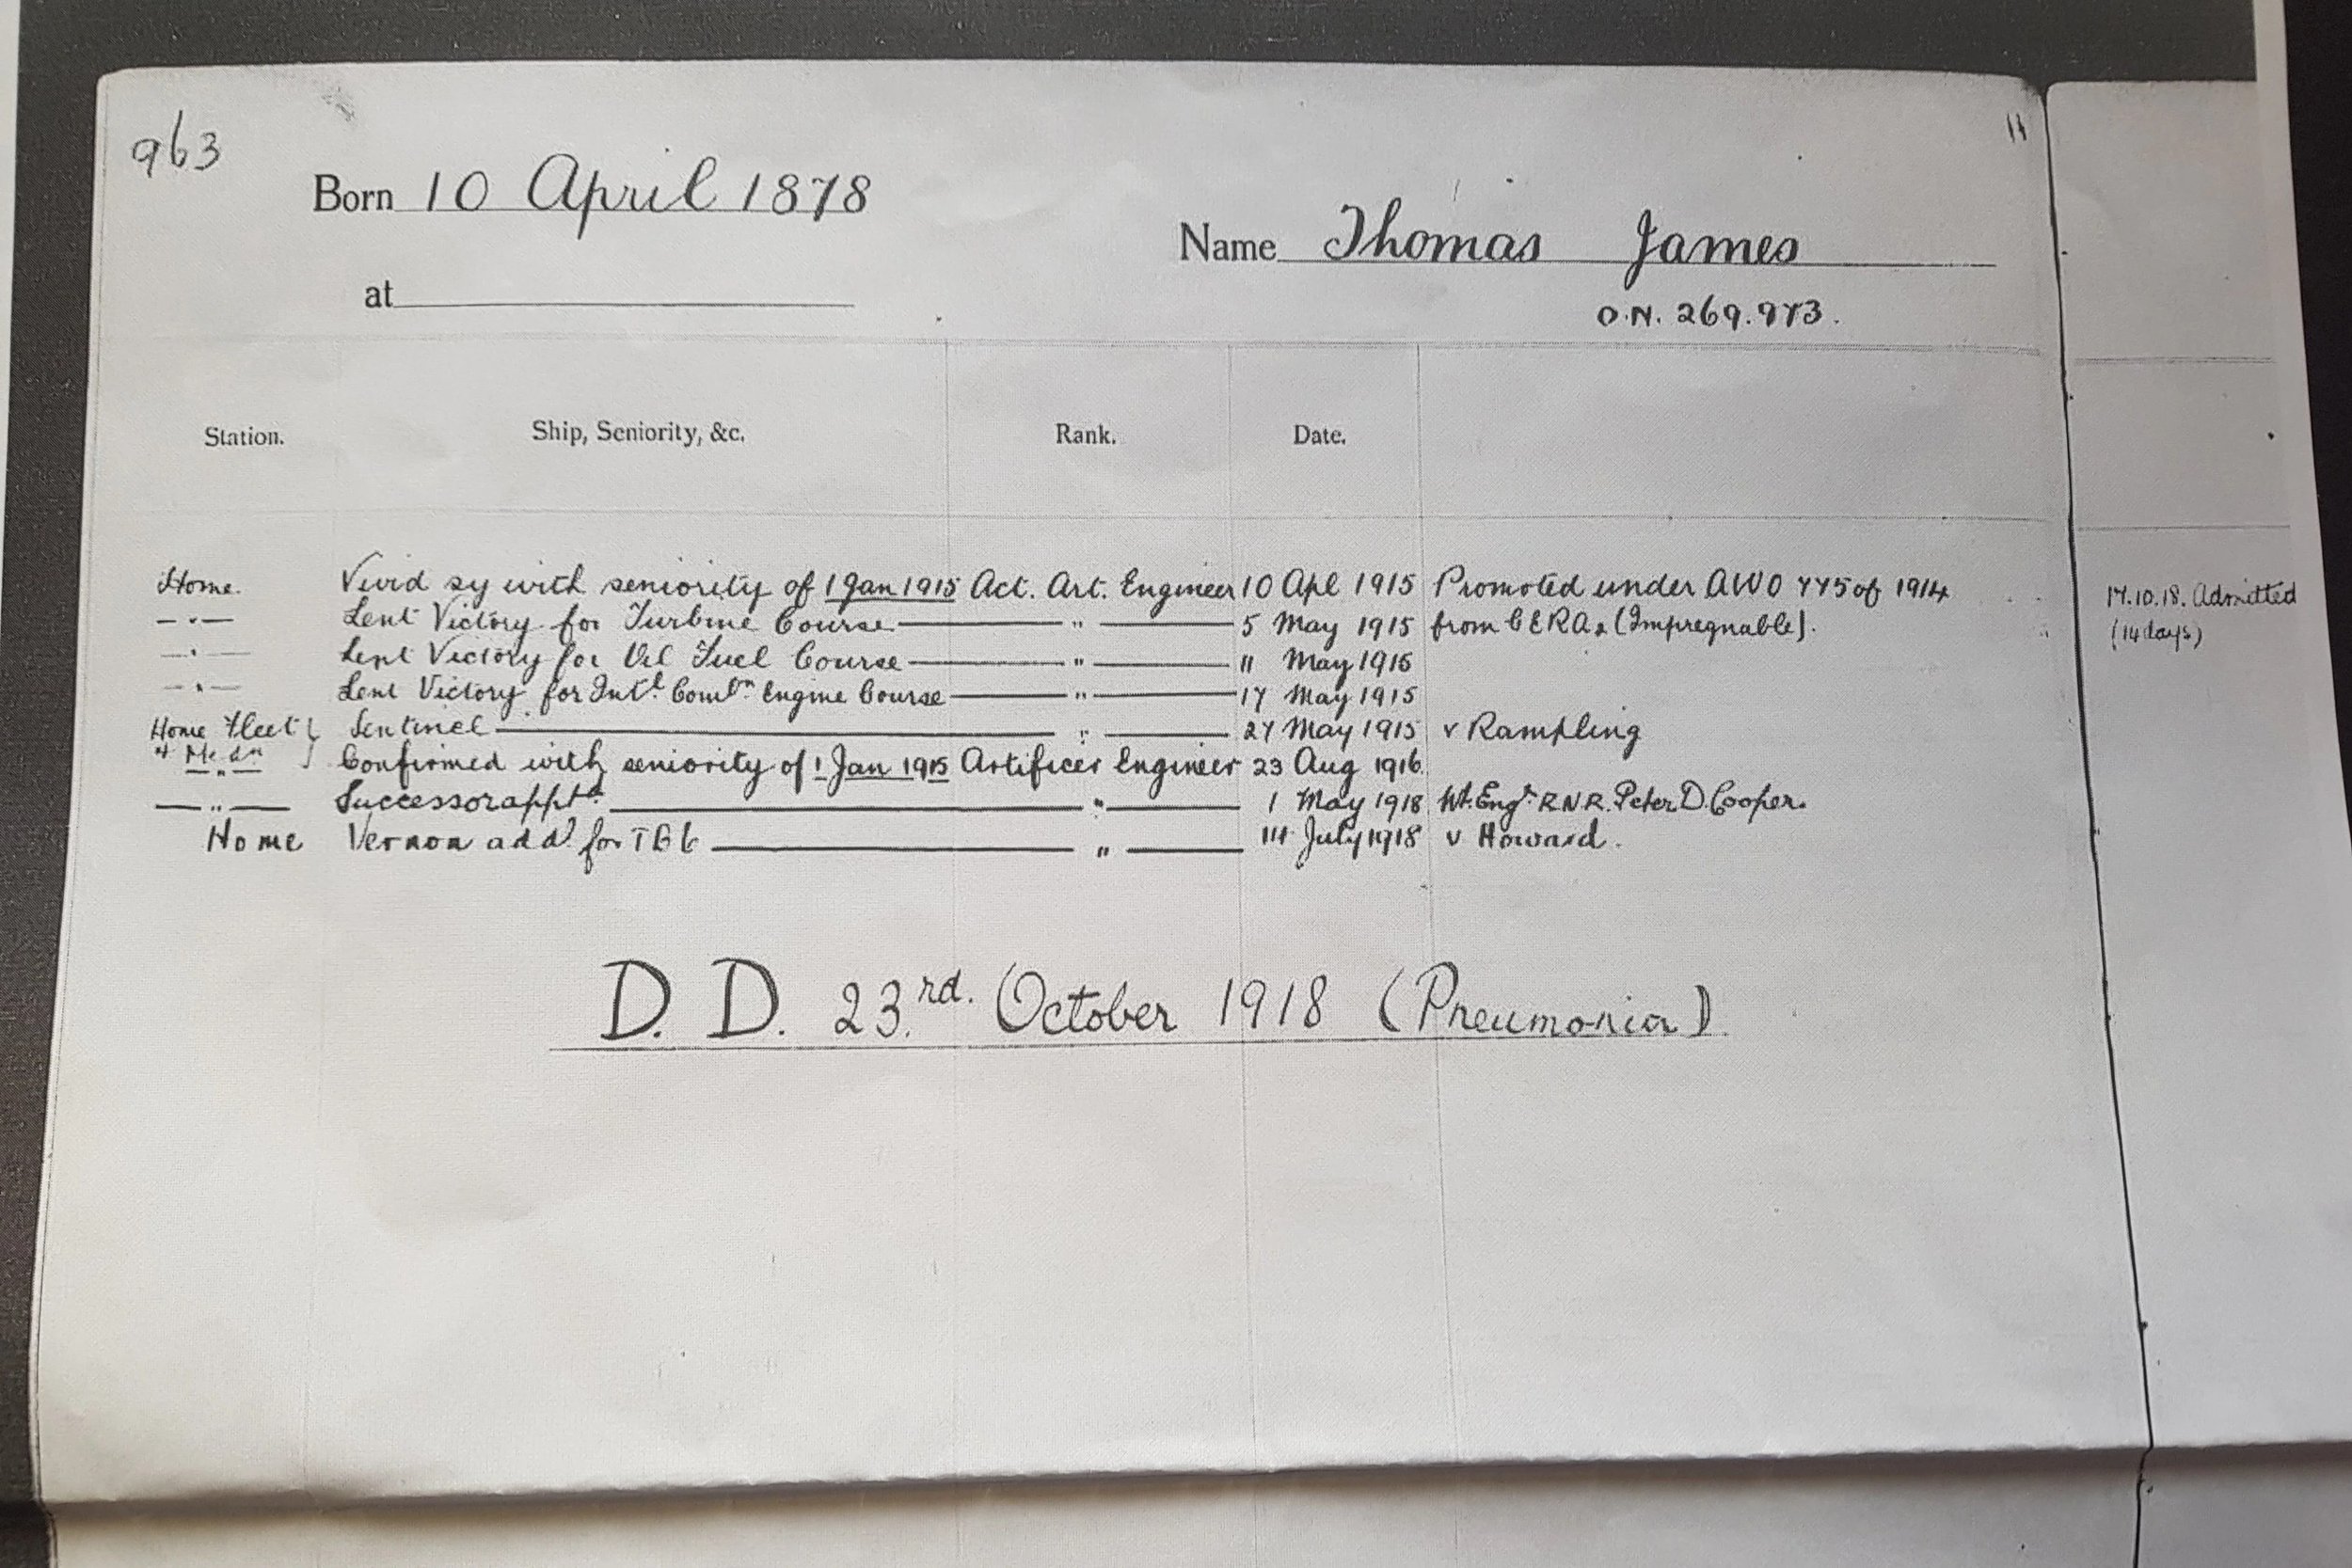 963
Born 10 April 1878
Name Thomas James
at
O.N. 269.973.
Station. Ship, Seniority, &c. Rank. Date.
Home. Vivid sy with seniority of 1 Jan 1915 Act. Art. Engineer 10 Apl 1915 Promoted under AWO 775 of 1914
—"— Lent Victory for Turbine Course — " — 5 May 1915 from CERA2 (Impregnable).
—"— Lent Victory for Oil Fuel Course — " — 11 May 1915
—"— Lent Victory for Intl. Combn Engine Course — " — 17 May 1915
Home Fleet Sentinel — " — 27 May 1915 v Rampling
—"— Confirmed with seniority of 1 Jan 1915 Artificer Engineer 23 Aug 1916.
—"— Successor apptd. — " — 1 May 1918 Wt. Engr. R.N.R. Peter D. Cooper.
Home Vernon addl for TB6 — " — 14 July 1918 v Howard.
D. D. 23rd. October 1918 (Pneumonia)
17.10.18. Admitted
(14 days)